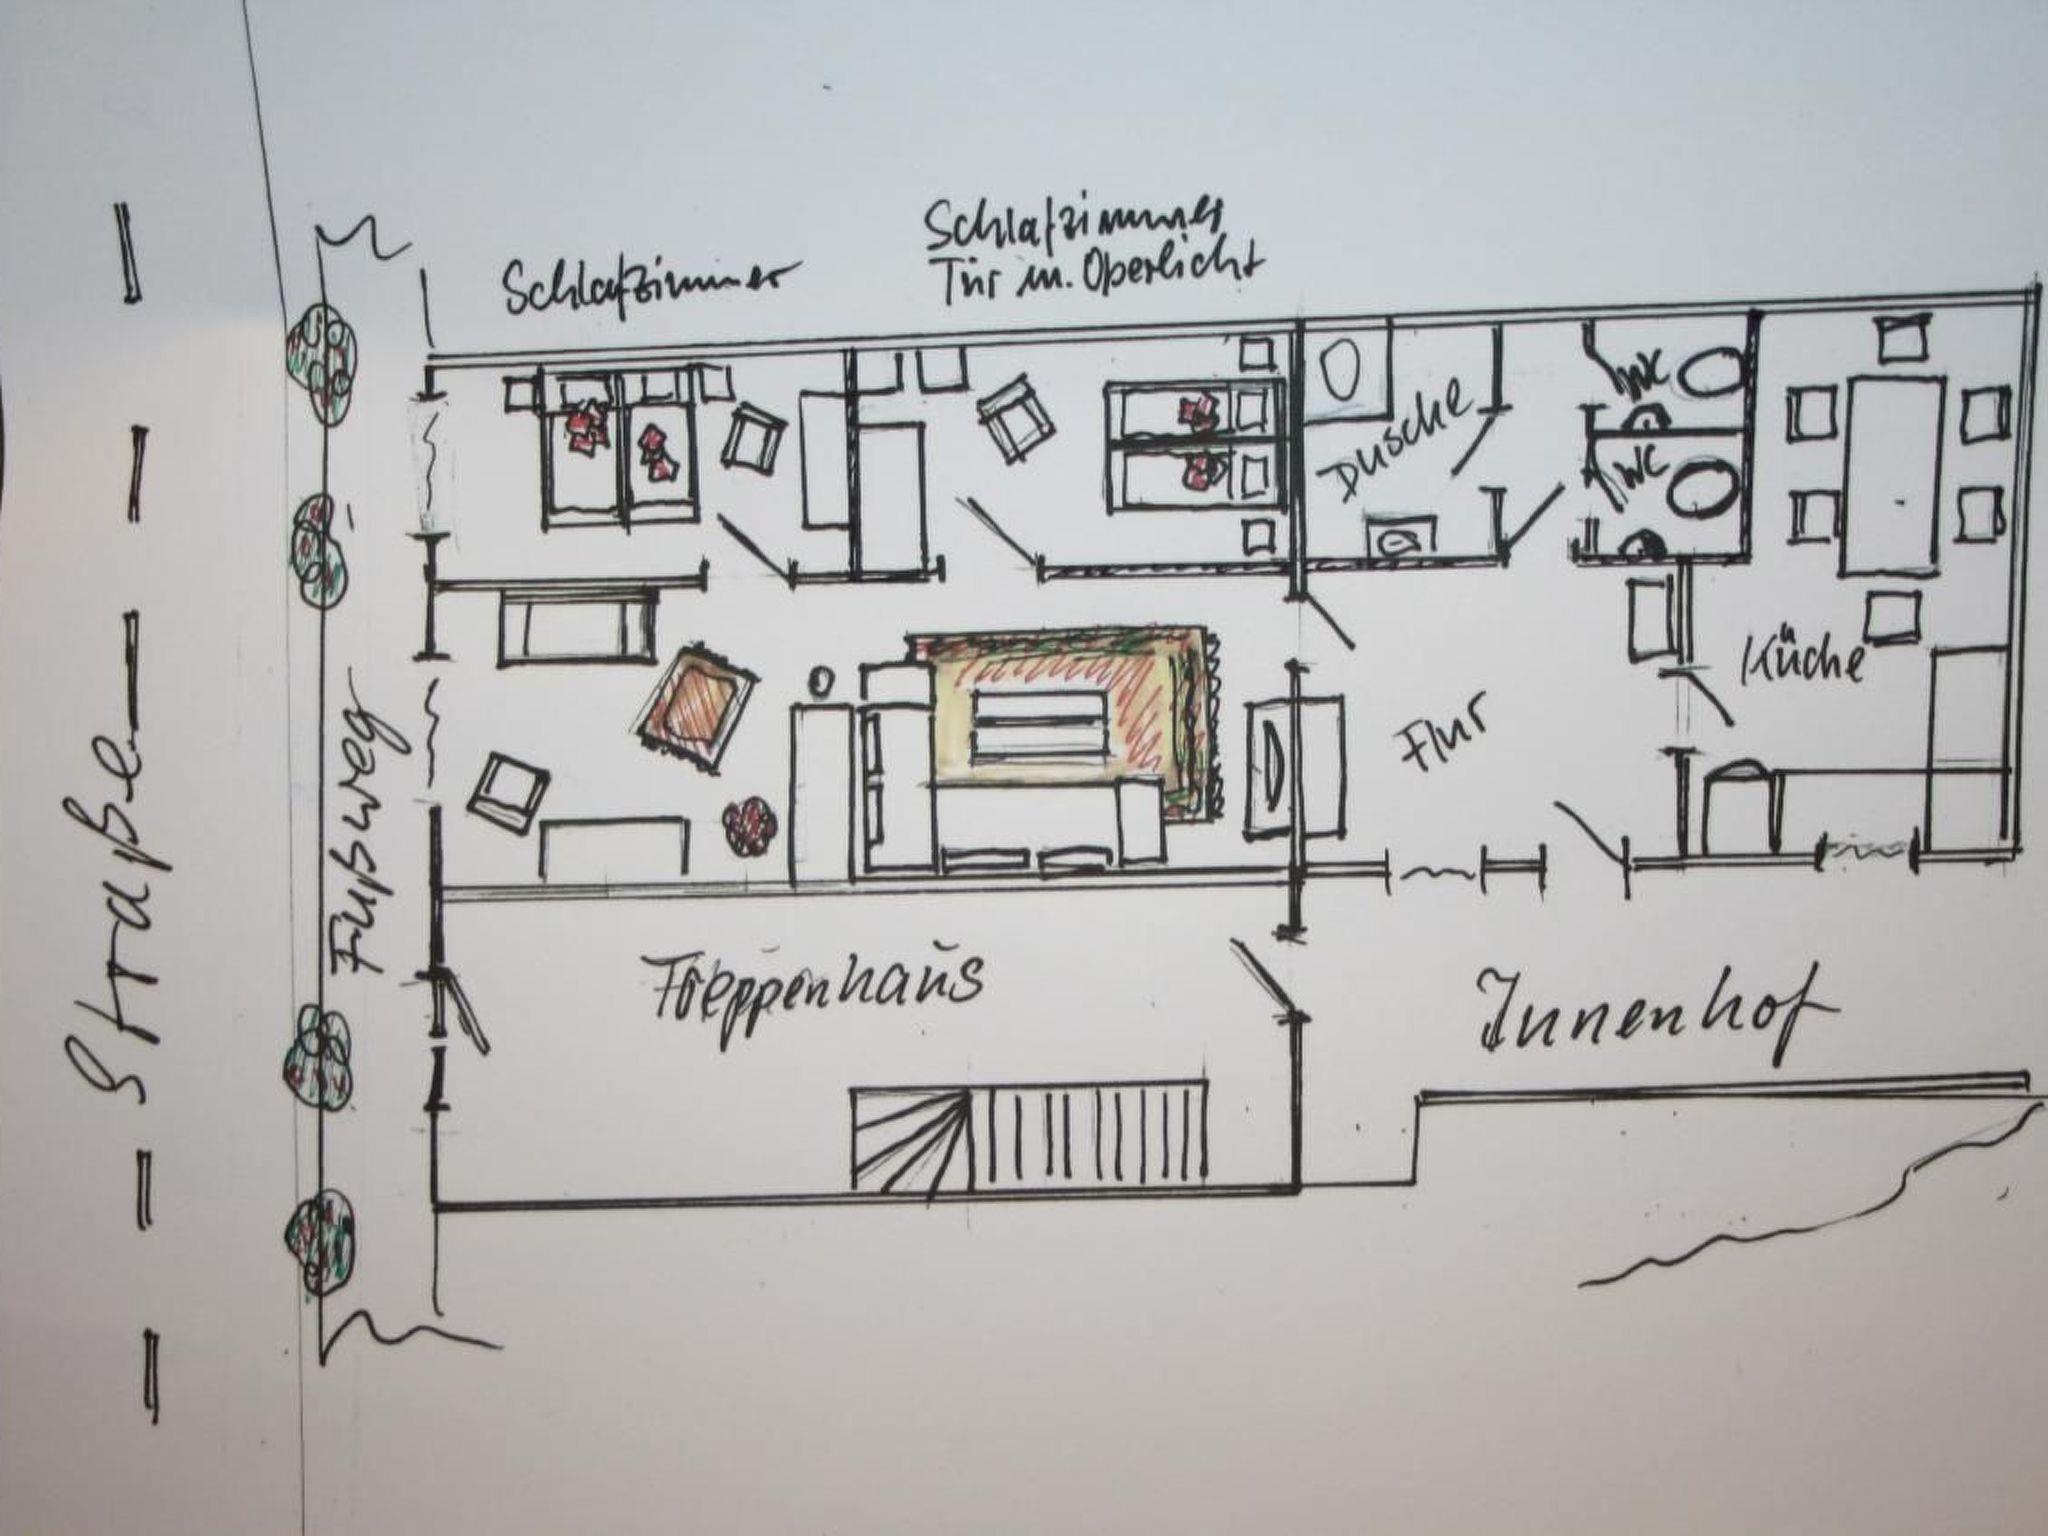 Schlafzimmer
Schlafzimmer
Tür m. Oberlicht
Dusche
WC
WC
Küche
Flur
Straße
Fußweg
Treppenhaus
Innenhof